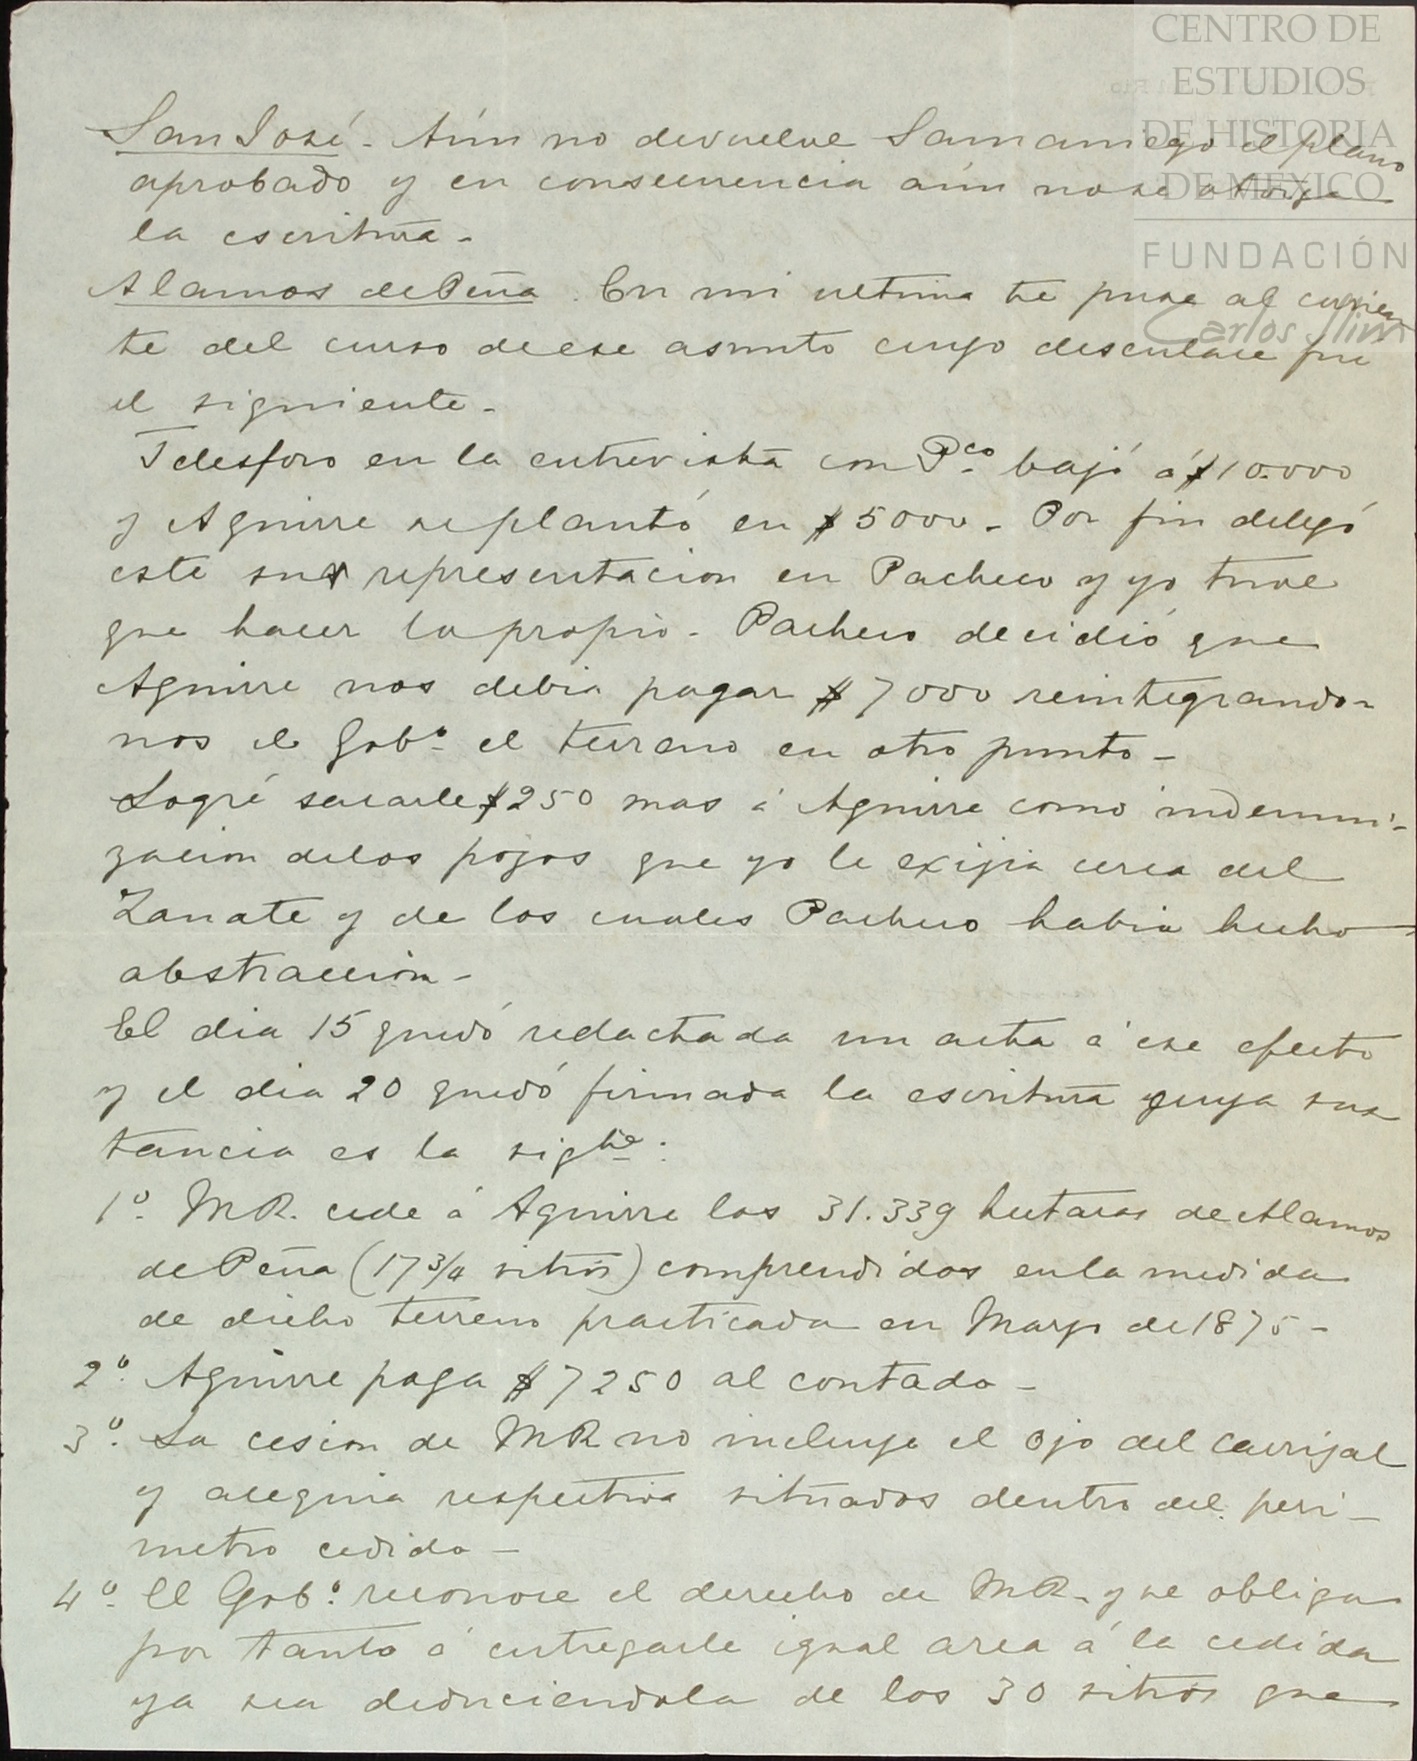 CENTRO DE
ESTUDIOS
DE HISTORIA
DE MEXICO
FUNDACIÓN
Carlos Slim
San José - Aún no devuelve Samaniego el plano
aprobado y en consecuencia aún no se otorga
la escritura -
Alamos de Peña. En mi ultima te puse al corrien
te del curso de ese asunto cuyo desenlace fue
el siguiente -
Telesforo en la entrevista con Pco. bajó á $10.000
y Aguirre se plantó en $5000 - Por fin delegó
este su representacion en Pacheco y yo tuve
que hacer lo propio - Pacheco decidió que
Aguirre nos debia pagar $7000 reintegrando-
nos el Gobo. el terreno en otro punto -
Logré sacarle $250 mas á Aguirre como indemni-
zacion de los pozos que yo le exijia cerca del
Zanate y de los cuales Pacheco habia hecho
abstraccion -
El dia 15 quedó redactada un acta á ese efecto
y el dia 20 quedó firmada la escritura cuya sus
tancia es la sigte:
1o. MR. cede á Aguirre las 31.339 hectaras de Alamos
de Peña (17 3/4 sitios) comprendidas en la medida
de dicho terreno practicada en Marzo de 1875 -
2o. Aguirre paga $7250 al contado -
3o. La cesion de MR no incluye el ojo del Carrizal
y acequia respectiva situados dentro del peri-
metro cedido -
4o. El Gobo. reconoce el derecho de MR. y se obliga
por tanto á entregarle igual area á la cedida
ya sea deduciendola de los 30 sitios que